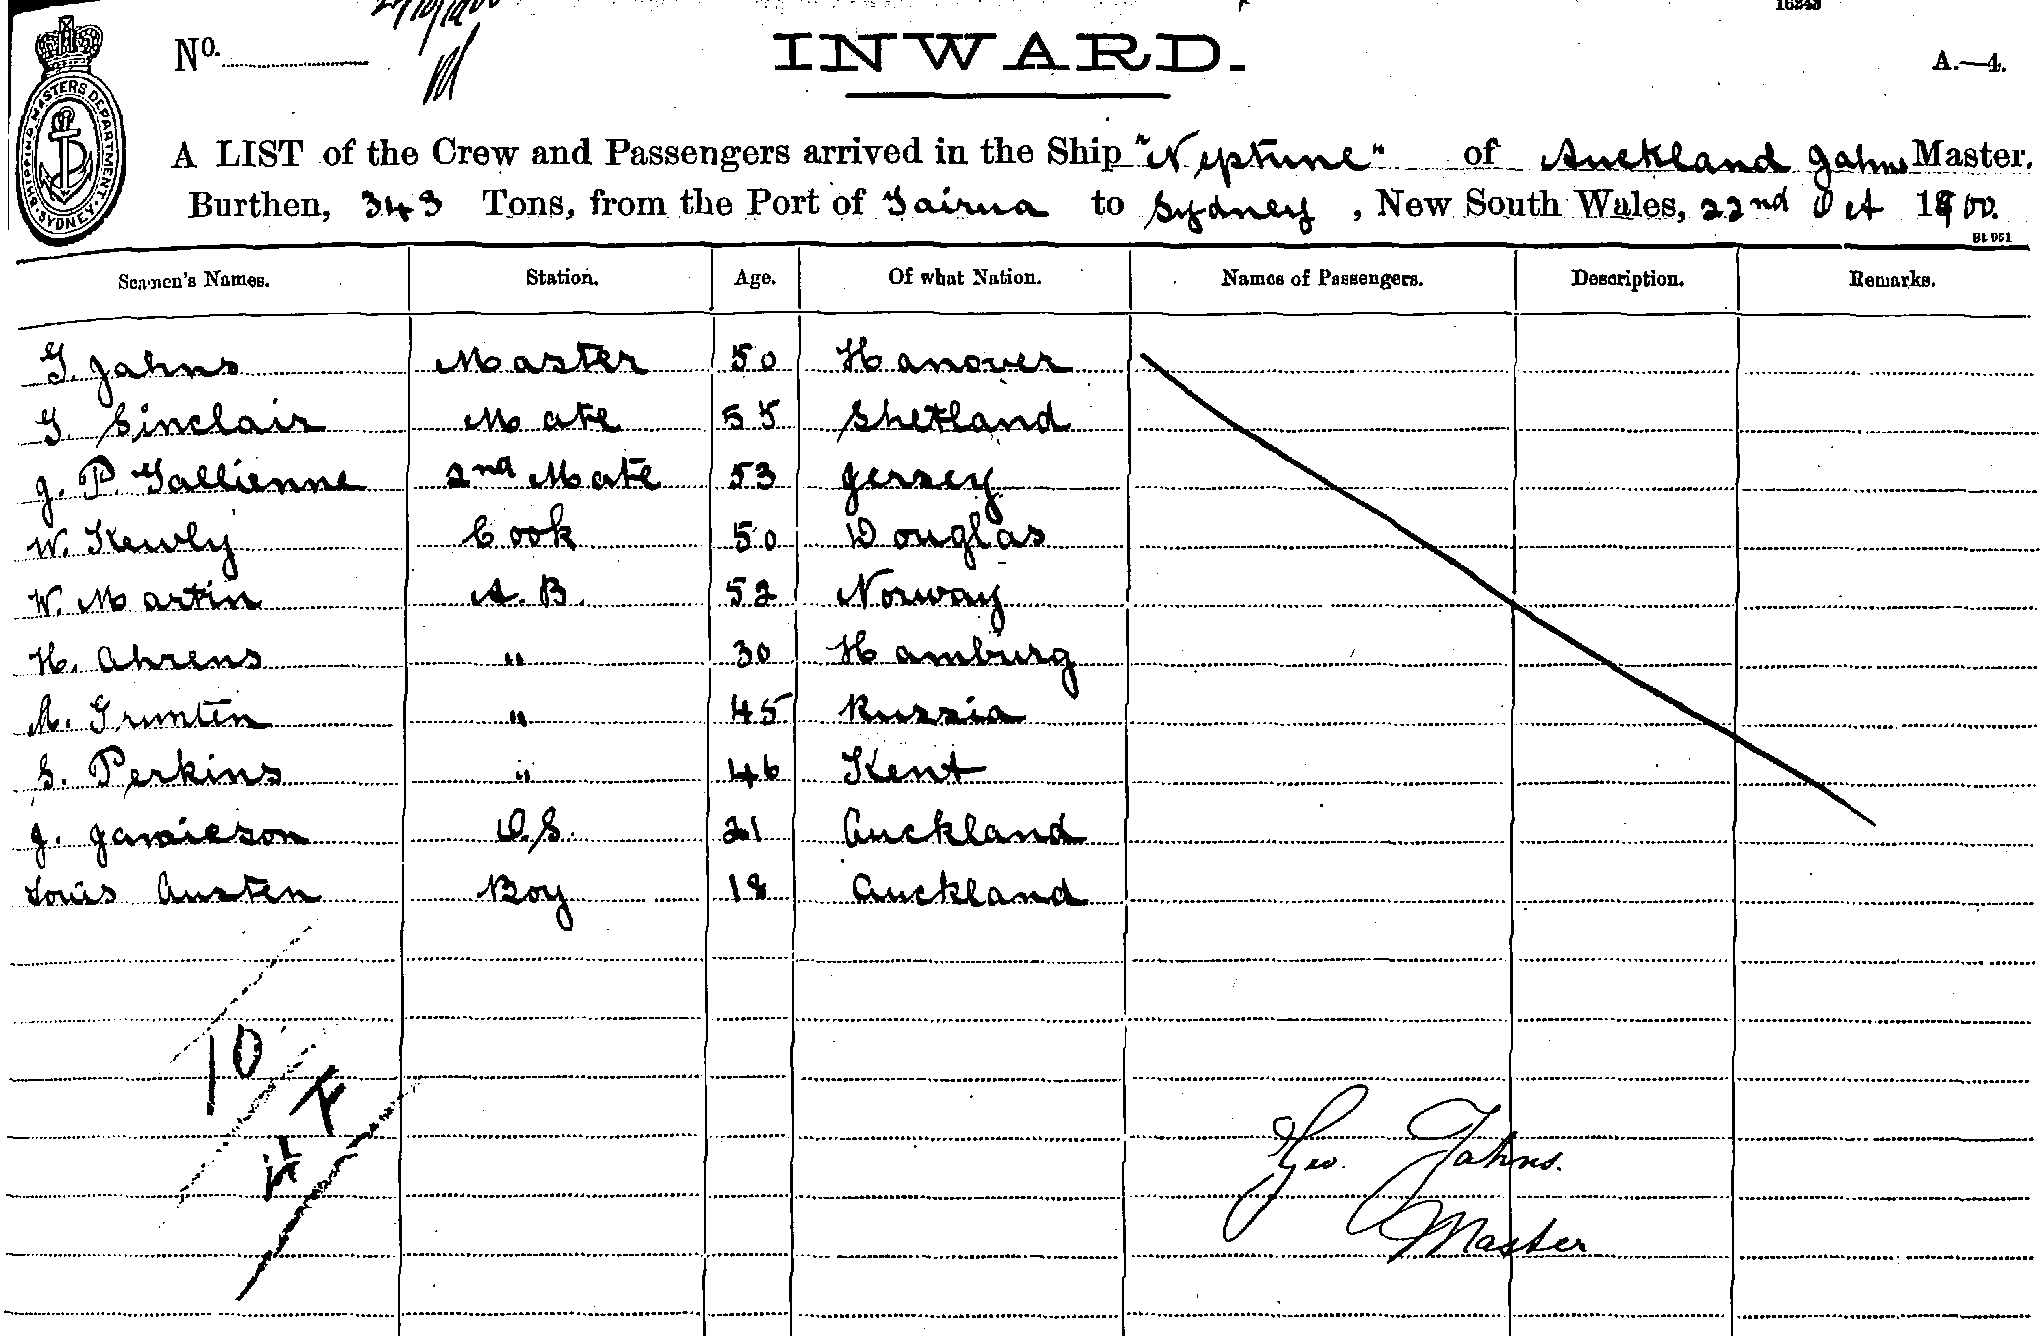 16243
No.
INWARD.
A.—4.
SHIPPING MASTERS DEPARTMENT. SYDNEY.
A LIST of the Crew and Passengers arrived in the Ship "Neptune" of Auckland Jahns Master.
Burthen, 343 Tons, from the Port of Tairua to Sydney, New South Wales, 22nd Oct 1900.
Seamen's Names. Station. Age. Of what Nation. Names of Passengers. Description. Remarks.
G. Jahns Master 50 Hanover
G. Sinclair Mate 55 Shetland
J. P. Gallienne 2nd Mate 53 Jersey
W. Kewly Cook 50 Douglas
W. Martin A.B. 52 Norway
H. Ahrens " 30 Hamburg
A. Grunten " 45 Russia
S. Perkins " 46 Kent
J. Jamieson O.S. 21 Auckland
Louis Austen Boy 18 Auckland
10
Geo. Jahns.
Master